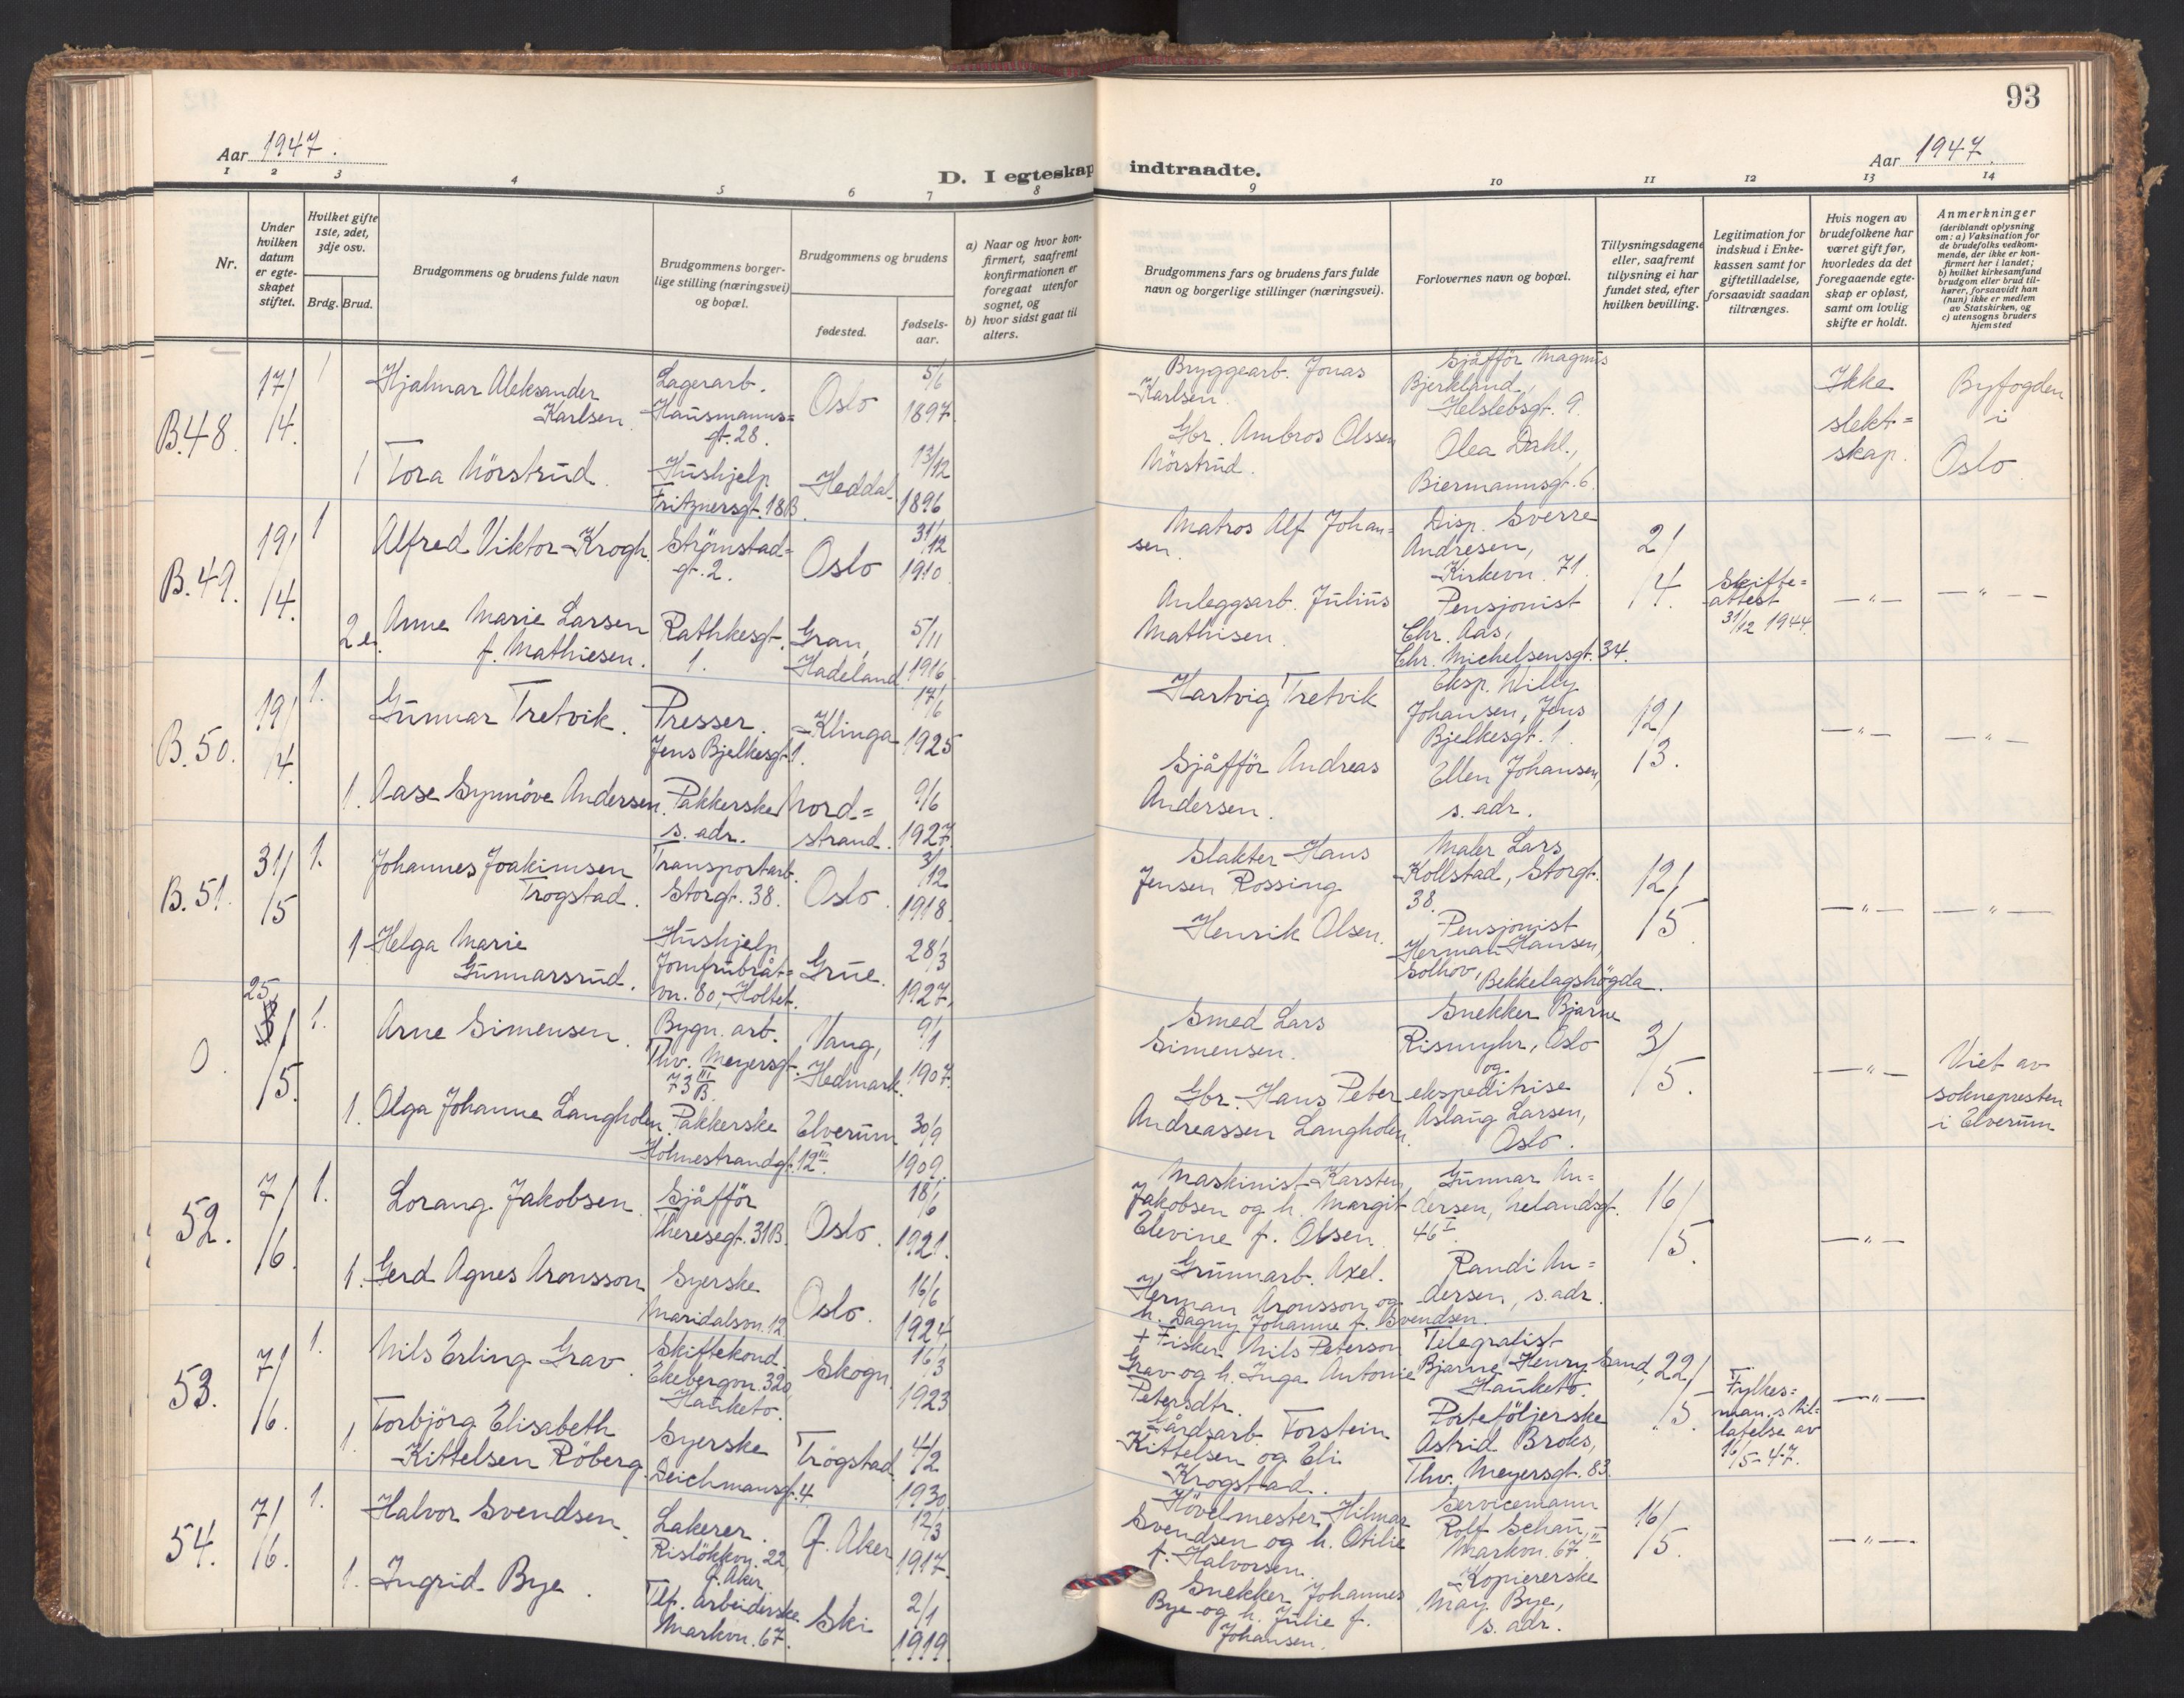 93
Aar 1947.
D. I egteskap indtraadte.
Aar 1947.
1 2 3 4 5 6 7 8 9 10 11 12 13 14
Nr.
Under
hvilken
datum
er egte-
skapet
stiftet.
Hvilket gifte
1ste, 2det,
3dje osv.
Brdg. Brud.
Brudgommens og brudens fulde navn
Brudgommens borger-
lige stilling (næringsvei)
og bopæl.
Brudgommens og brudens
fødested.
fødsels-
aar.
a) Naar og hvor kon-
firmert, saafremt
konfirmationen er
foregaat utenfor
sognet, og
b) hvor sidst gaat til
alters.
Brudgommens fars og brudens fars fulde
navn og borgerlige stillinger (næringsvei).
Forlovernes navn og bopæl.
Tillysningsdagene
eller, saafremt
tillysning ei har
fundet sted, efter
hvilken bevilling.
Legitimation for
indskud i Enke-
kassen samt for
giftetilladelse,
forsaavidt saadan
tiltrænges.
Hvis nogen av
brudefolkene har
været gift før,
hvorledes da det
foregaaende egte-
skap er opløst,
samt om lovlig
skifte er holdt.
Anmerkninger
(deriblandt oplysning
om: a) Vaksination for
de brudefolks vedkom-
mende, der ikke er kon-
firmert her i landet;
b) hvilket kirkesamfund
brudgom eller brud til-
hører, forsaavidt han
(hun) ikke er medlem
av Statskirken, og
c) utensogns bruders
hjemsted
B.48.
17/
/4.
1
Hjalmar Aleksander
Karlsen.
Lagerarb.
Hausmanns=
gt. 28.
Oslo
5/6
1897.
1
Tora Mörstrud.
Hushjelp
Fritznersgt. 18B.
Heddal
13/12
1896
Bryggearb. Jonas
Karlsen.
Gbr. Ambros Olssen
Mörstrud.
Sjåfför Magnus
Bjerkland,
gt. 9.
Olea Dahl.,
Biermannsgt. 6.
Ikke
slekt=
skap.
Byfogden
i
Oslo
B.49.
19/
/4.
1
Alfred Viktor Krogh
Strømstad=
gt. 2.
Oslo
31/12
1910.
2 e.
Anne Marie Larsen
f. Mathiesen.
Rathkesgt.
1.
Gran,
Hadeland
5/11
1916
Matros Alf Johan=
sen.
Anleggsarb. Julius
Mathisen.
Disp. Sverre
Andresen,
Kirkevn. 71.
Pensjonist
Chr. Aas,
Chr. Michelsensgt. 34.
2/
/4.
Skifte=
attest
31/12 1944.
— " —
— " — —
B.50.
19/
/4.
1.
Gunnar Tretvik.
Presser.
Jens Bjelkesgt. 1.
Klinga
17/6
1925
1.
Aase Synnöve Andersen.
Pakkerske
s. adr.
Nord=
strand.
9/6
1927.
Hartvig Tretvik
Sjåfför Andreas
Andersen.
Eksp. Willy
Johansen, Jens
Bjelkesgt. 1.
Ellen Johansen,
s. adr.
12/
/3.
— " —
— " —
B.51.
31/
/5
1.
Johannes Joakimsen
Trogstad.
Transportarb.
Storgt. 38.
Oslo.
3/12
1918.
1
Helga Marie
Gunnarsrud.
Hushjelp
Jomfrubråt=
vn. 80, Holtet.
Grue.
28/3
1927.
Slakter Hans
Jensen Rossing
Henrik Olsen.
Maler Lars
Kollstad, Storgt.
38.
Pensjonist
Herman Hansen,
Solhov, Bekkelagshögda.
12/
/5.
— " —
— " —
0.
25/
/5.
1.
Arne Simensen.
Bygn. arb.
Thv. Meyersgt.
73 III B.
Vang,
Hedmark.
9/1
1907.
1.
Olga Johanne Langholen.
Pakkerske
Holmestrandgt. 12 III.
Elverum
30/9
1909.
Smed Lars
Simensen.
Gbr. Hans Peter
Andreassen Langholen.
Snekker Bjarne
Rismyhr, Oslo
og
ekspeditrise
Aslaug Larsen,
Oslo.
3/
/5.
— " —
Viet av
soknepresten
i Elverum
52.
7/
/6.
1.
Lorang Jakobsen.
Sjåfför
Theresegt. 31B.
Oslo.
18/6
1921.
1.
Gerd Agnes Aronsson
Syerske
Maridalsvn. 12
Oslo.
16/6
1924
Maskinist Karsten
Jakobsen og h. Margit
Elevine f. Olsen.
Grunnarb. Axel.
Herman Aronsson og
h. Dagny Johanne f. Svendsen.
Gunnar An=
dersen, Helandsgt.
46 I.
Randi An=
dersen, s. adr.
16/
/5.
— " —
53.
7/
/6.
1.
Nils Erling Grav.
Skiftekond.
Ekebergvn. 320,
Hauketo.
Skogn.
16/3
1923
1.
Torbjörg Elisabeth
Kittelsen Röberg.
Syerske
Deichmansgt. 4.
Trögstad
4/2
1930.
+ Fisker Nils Peterson
Grav og h. Inga Antonie
Petersdtr.
Gårdsarb. Torstein
Kittelsen og Eli
Krogstad.
Telegrafist
Bjarne Henry Sand
Hauketo.
Porteföljerske
Astrid Broks,
Thv. Meyersgt. 83.
22/
/5.
Fylkes=
man.s til=
latelse av
16/5-47.
— " —
54.
7/
/6.
1.
Halvor Svendsen.
Lakerer.
Rislökkvn. 22,
Ø. Aker.
Ø. Aker
12/3
1917.
1.
Ingrid Bye.
Tlf. arbeiderske
Markvn. 67.
Ski
2/1
1919.
Hövelmester Hilmar
Svendsen og h. Otilie
f. Halvorsen.
Snekker Johannes
Bye og h. Julie f.
Johansen.
Servicemann
Rolf Schau,
Markvn. 67 II
Kopiererske
May Bye,
s. adr.
16/
/5.
— " —